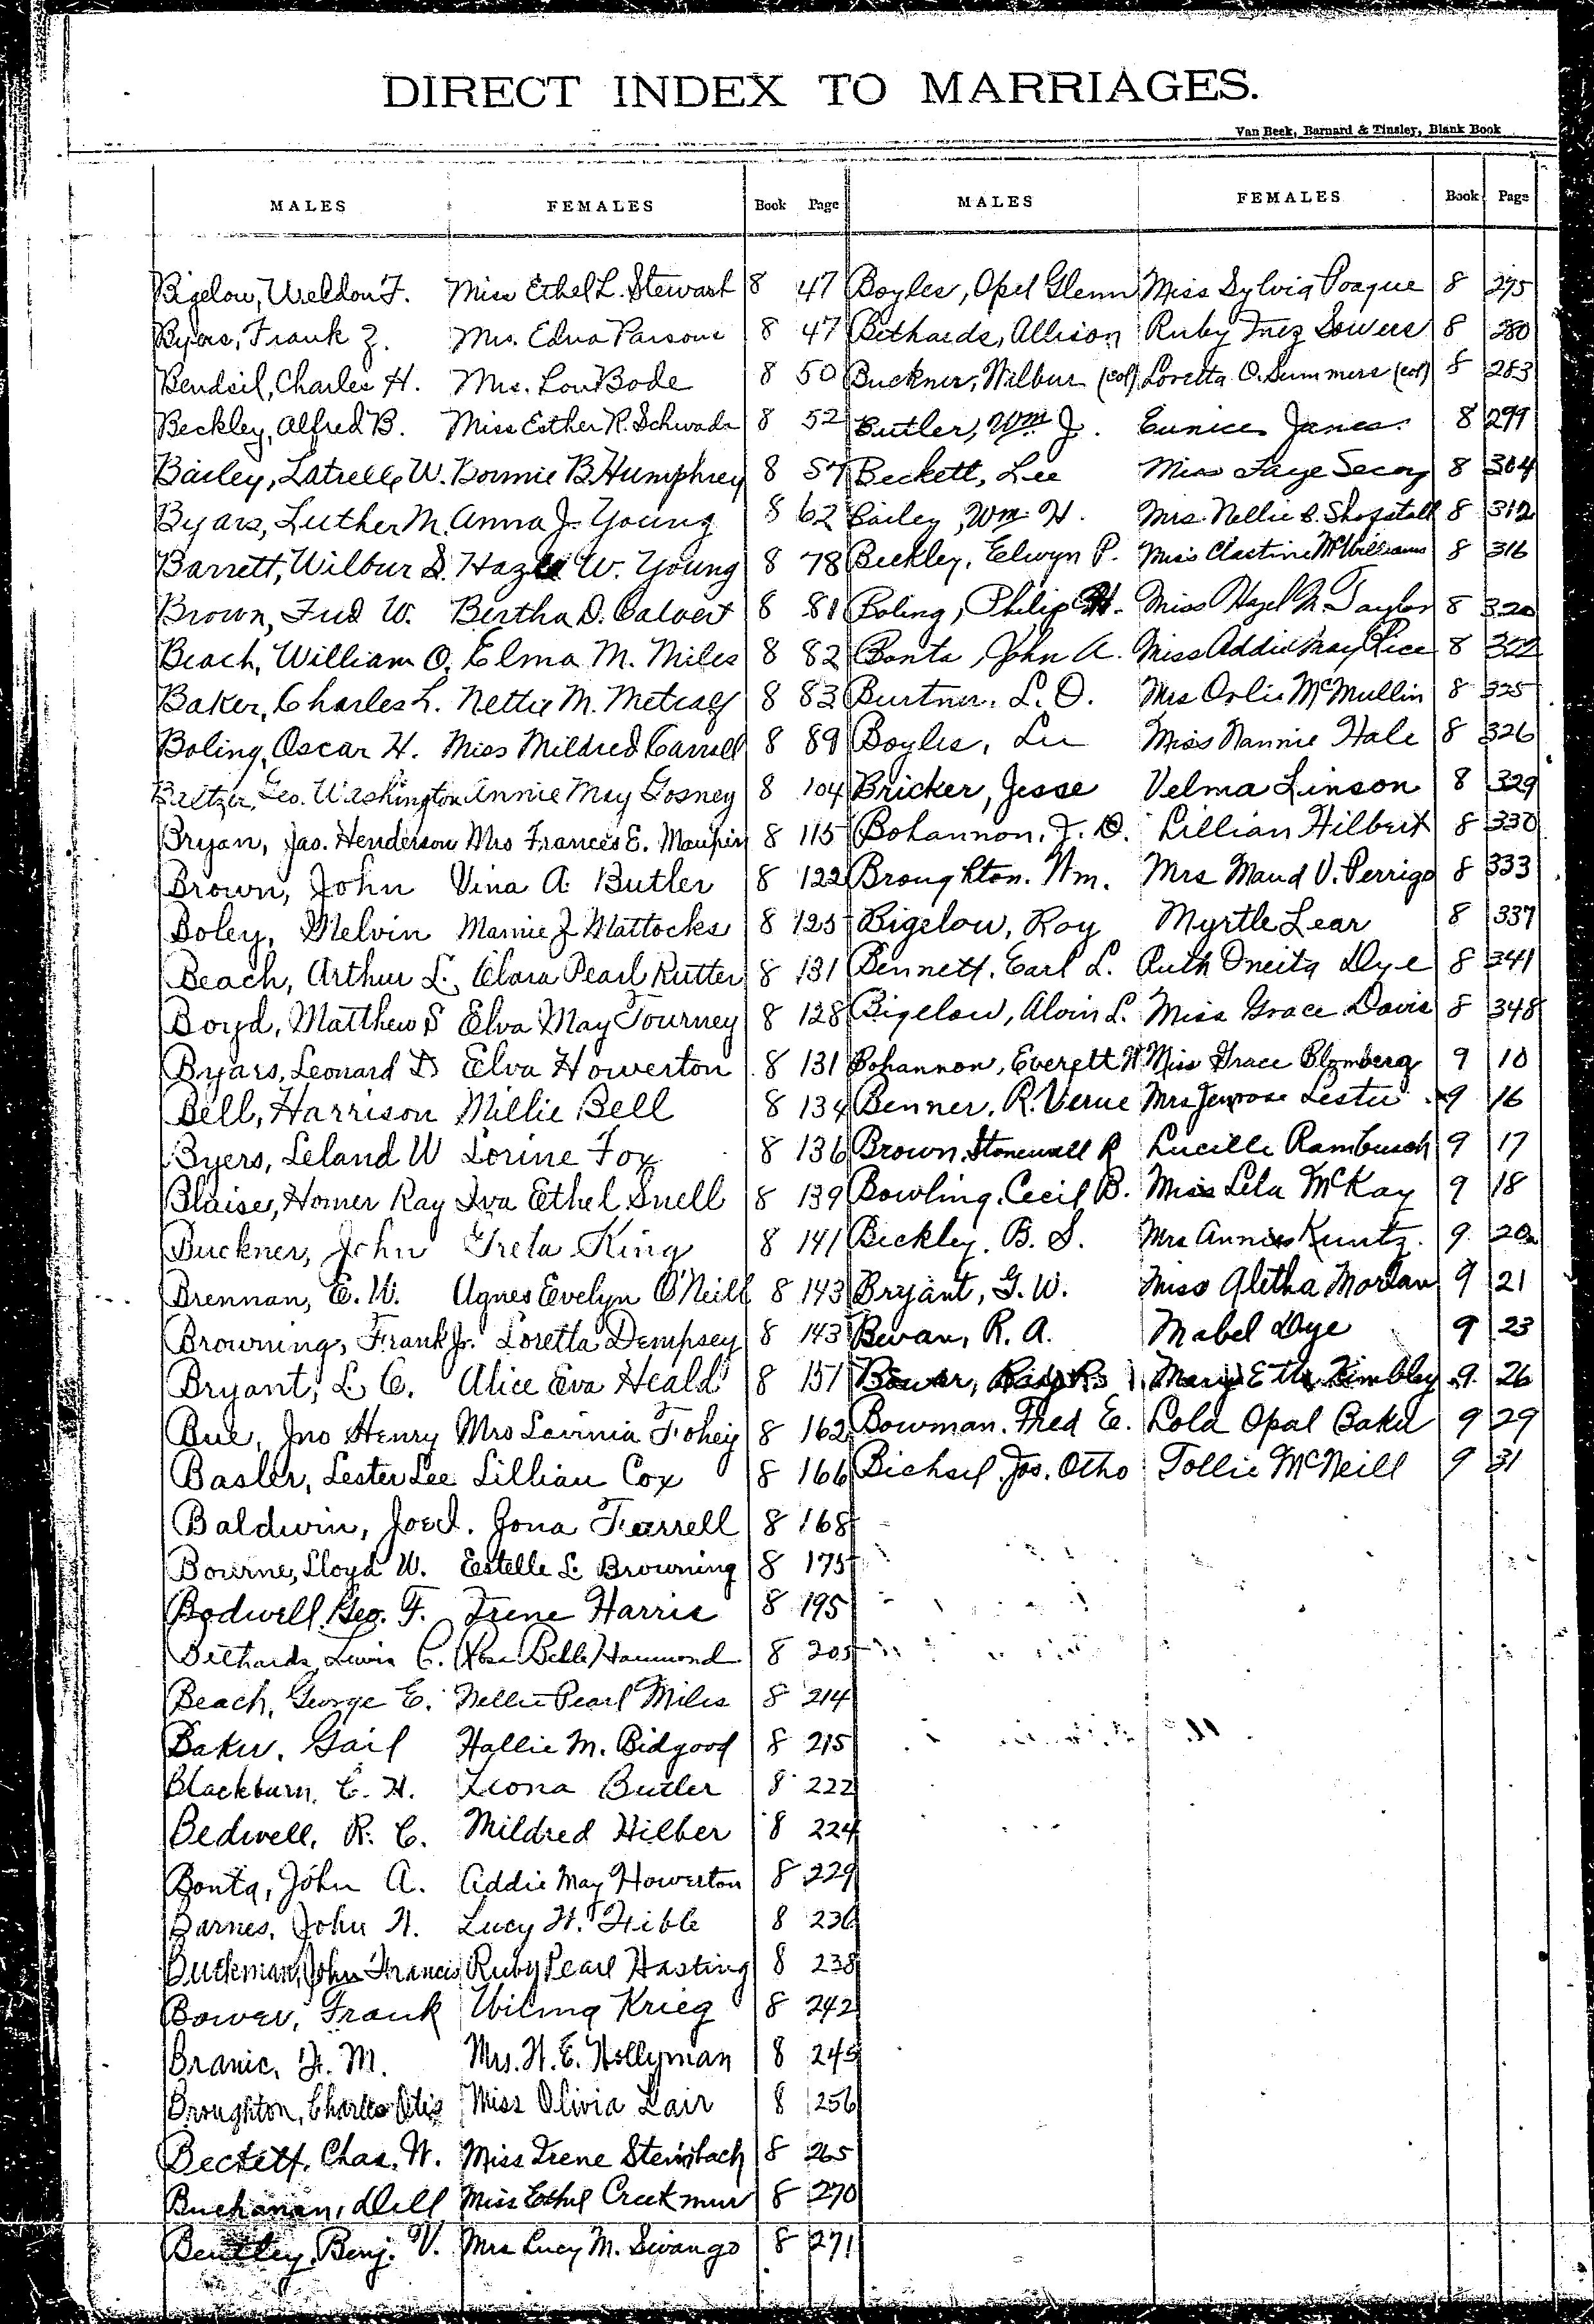 DIRECT INDEX TO MARRIAGES.
Van Beek, Barnard & Tinsley, Blank Book
MALES FEMALES Book Page MALES FEMALES Book Page
Bigelow, Weldon F. Miss Ethel L. Stewart 8 47 Boyles, Opel Glenn Miss Sylvia Poague 8 295
Byers, Frank Z. Mrs. Edna Parsons 8 47 Bethards, Allison Ruby Inez Sowers 8 280
Bendsil, Charles H. Mrs. Lou Bode 8 50 Buckner, Wilbur (col) Loretta O. Summers (col) 8 283
Beckley, Alfred B. Miss Esther R. Schwada 8 52 Butler, Wm J. Eunice Janes 8 299
Bailey, Latrelle W. Bonnie B. Humphrey 8 57 Beckett, Lee Miss Faye Secoy 8 304
Byars, Luther M. Anna J. Young 8 62 Bailey, Wm. H. Mrs. Nellie B. 8 312
Barrett, Wilbur S. Hazel W. Young 8 78 Beckley, Elwyn P. Miss Clastine McWilliams 8 316
Brown, Fred W. Bertha D. Calvert 8 81 Boling, Philip H. Miss Hazel M. Taylor 8 320
Beach, William O. Elma M. Miles 8 82 Bonta, John A. Miss Addie May Rice 8 322
Baker, Charles L. Nettie M. Metcalf 8 83 Burtner, L. O. Mrs Orlie McMullin 8 325
Boling, Oscar H. Miss Mildred Carroll 8 89 Boyles, Lee Miss Nannie Hale 8 326
Baltzer, Geo. Washington Annie May Gosney 8 104 Bricker, Jesse Velma Linson 8 329
Bryan, Jas. Henderson Mrs Frances E. Maupin 8 115 Bohannon, J. O. Lillian Hilbert 8 330
Brown, John Vina A. Butler 8 122 Broughton, Wm. Mrs Maud V. Perrigo 8 333
Boley, Melvin Mamie J Mattocks 8 125 Bigelow, Roy Myrtle Lear 8 337
Beach, Arthur L. Clara Pearl Rutter 8 131 Bennett, Earl L. Ruth Oneita Dye 8 341
Boyd, Matthew S Elva May Tourney 8 128 Bigelow, Alvin L. Miss Grace Davis 8 348
Byars, Leonard D Elva Howerton 8 131 Bohannon, Everett H Miss Grace Blomberg 9 10
Bell, Harrison Millie Bell 8 134 Benner, R. Verne Mrs Lester 9 16
Byers, Leland W Lorine Fox 8 136 Brown, Stonewall R Lucille Rambusch 9 17
Blaise, Homer Ray Iva Ethel Snell 8 139 Bowling, Cecil B. Miss Lela McKay 9 18
Buckner, John Greta King 8 141 Beckley, B. S. Mrs Annie Kuntz. 9 20
Brennan, E. W. Agnes Evelyn O'Neill 8 143 Bryant, G. W. Miss Aletha Morlan 9 21
Browning, Frank Jr. Loretta Dempsey 8 143 Bevan, R. A. Mabel Dye 9 23
Bryant, L. C. Alice Eva Heald 8 151 Bower, Mary Kimbley 9 26
Bue, Jno Henry Mrs Lavinia Fohey 8 162 Bowman, Fred E. Lola Opal Baker 9 29
Basler, Lester Lee Lillian Cox 8 166 Bichsel, Jos. Otho Tollie McNeill 9 31
Baldwin, Joe J. Zona Farrell 8 168
Bourne, Lloyd W. Estelle L. Browning 8 175
Bodwell, Geo. F. Irene Harris 8 195
Bethards, Lewis C. Rosa Belle Hammond 8 205
Beach, George E. Nellie Pearl Miles 8 214
Baker, Gail Hallie M. Bidgood 8 215
Blackburn, C. H. Leona Butler 8 222
Bedwell, R. C. Mildred Hilber 8 224
Bonta, John A. Addie May Howerton 8 229
Barnes, John H. Lucy H. Fible 8 236
Buckman, John Francis Ruby Pearl Hasting 8 238
Bower, Frank Wilma Krieg 8 242
Branic, F. M. Mrs. H. E. Hollyman 8 245
Broughton, Charles Otis Miss Olivia Lair 8 256
Beckett, Chas. W. Miss Irene Steinbach 8 265
Buchanan, Dell Miss Ethel Creekmur 8 270
Bentley, Benj. V. Mrs Lucy M. Swango 8 271